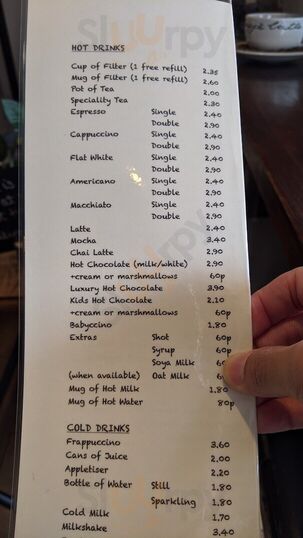 Slurrpy
HOT DRINKS
Cup of Filter (1 free refill) 2.35
Mug of Filter (1 free refill) 2.60
Pot of Tea 2.00
Speciality Tea 2.30
Espresso Single 2.40
Double 2.90
Cappuccino Single 2.40
Double 2.90
Flat White Single 2.40
Double 2.90
Americano Single 2.40
Double 2.90
Macchiato Single 2.40
Double 2.90
Latte 2.40
Mocha 3.40
Chai Latte 2.90
Hot Chocolate (milk/white) 2.90
+cream or marshmallows 60p
Luxury Hot Chocolate 3.90
Kids Hot Chocolate 2.10
+cream or marshmallows 60p
Babyccino 1.80
Extras Shot 60p
Syrup 60p
Soya Milk
(when available) Oat Milk
Mug of Hot Milk 1.80
Mug of Hot Water 80p
COLD DRINKS
Frappuccino 3.60
Cans of Juice 2.00
Appletiser 2.20
Bottle of Water Still 1.80
Sparkling 1.80
Cold Milk 1.70
Milkshake 3.40